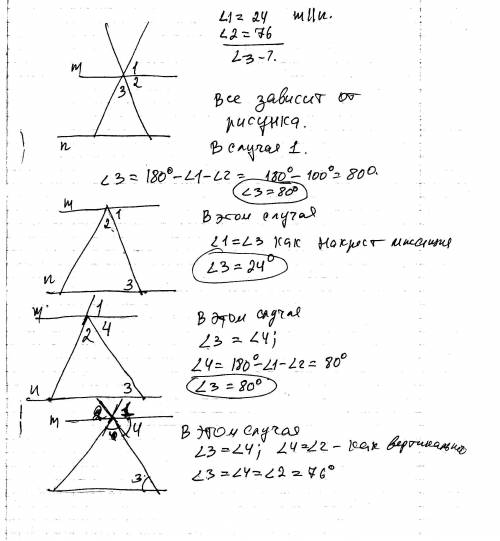 ∠1 = 24 m∥n.
∠2 = 76
∠3 - ?.
m 1
3 2
n
Все зависит от
рисунка.
В случая 1.
∠3 = 180° - ∠1 - ∠2 = 180° - 100° = 80°.
∠3 = 80°
m 1
2
n 3
В этом случая
∠1 = ∠3 как накрест лежащие
∠3 = 24°
m 1
2 4
n 3
В этом случая
∠3 = ∠4;
∠4 = 180° - ∠1 - ∠2 = 80°
∠3 = 80°
m 2 1
4
3
В этом случая
∠3 = ∠4; ∠4 = ∠2 - как вертикальные
∠3 = ∠4 = ∠2 = 76°